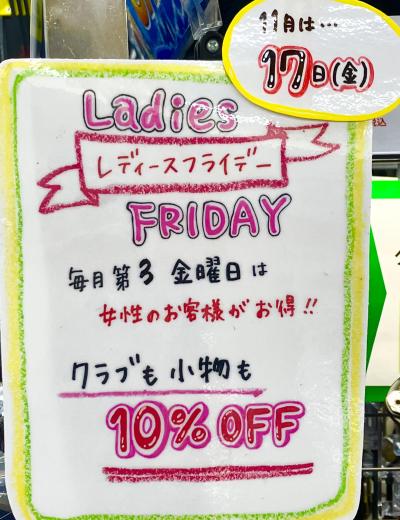 11月は…
17日(金)
Ladies
レディースフライデー
FRIDAY
毎月第3 金曜日は
女性のお客様がお得!!
クラブも小物も
10% OFF